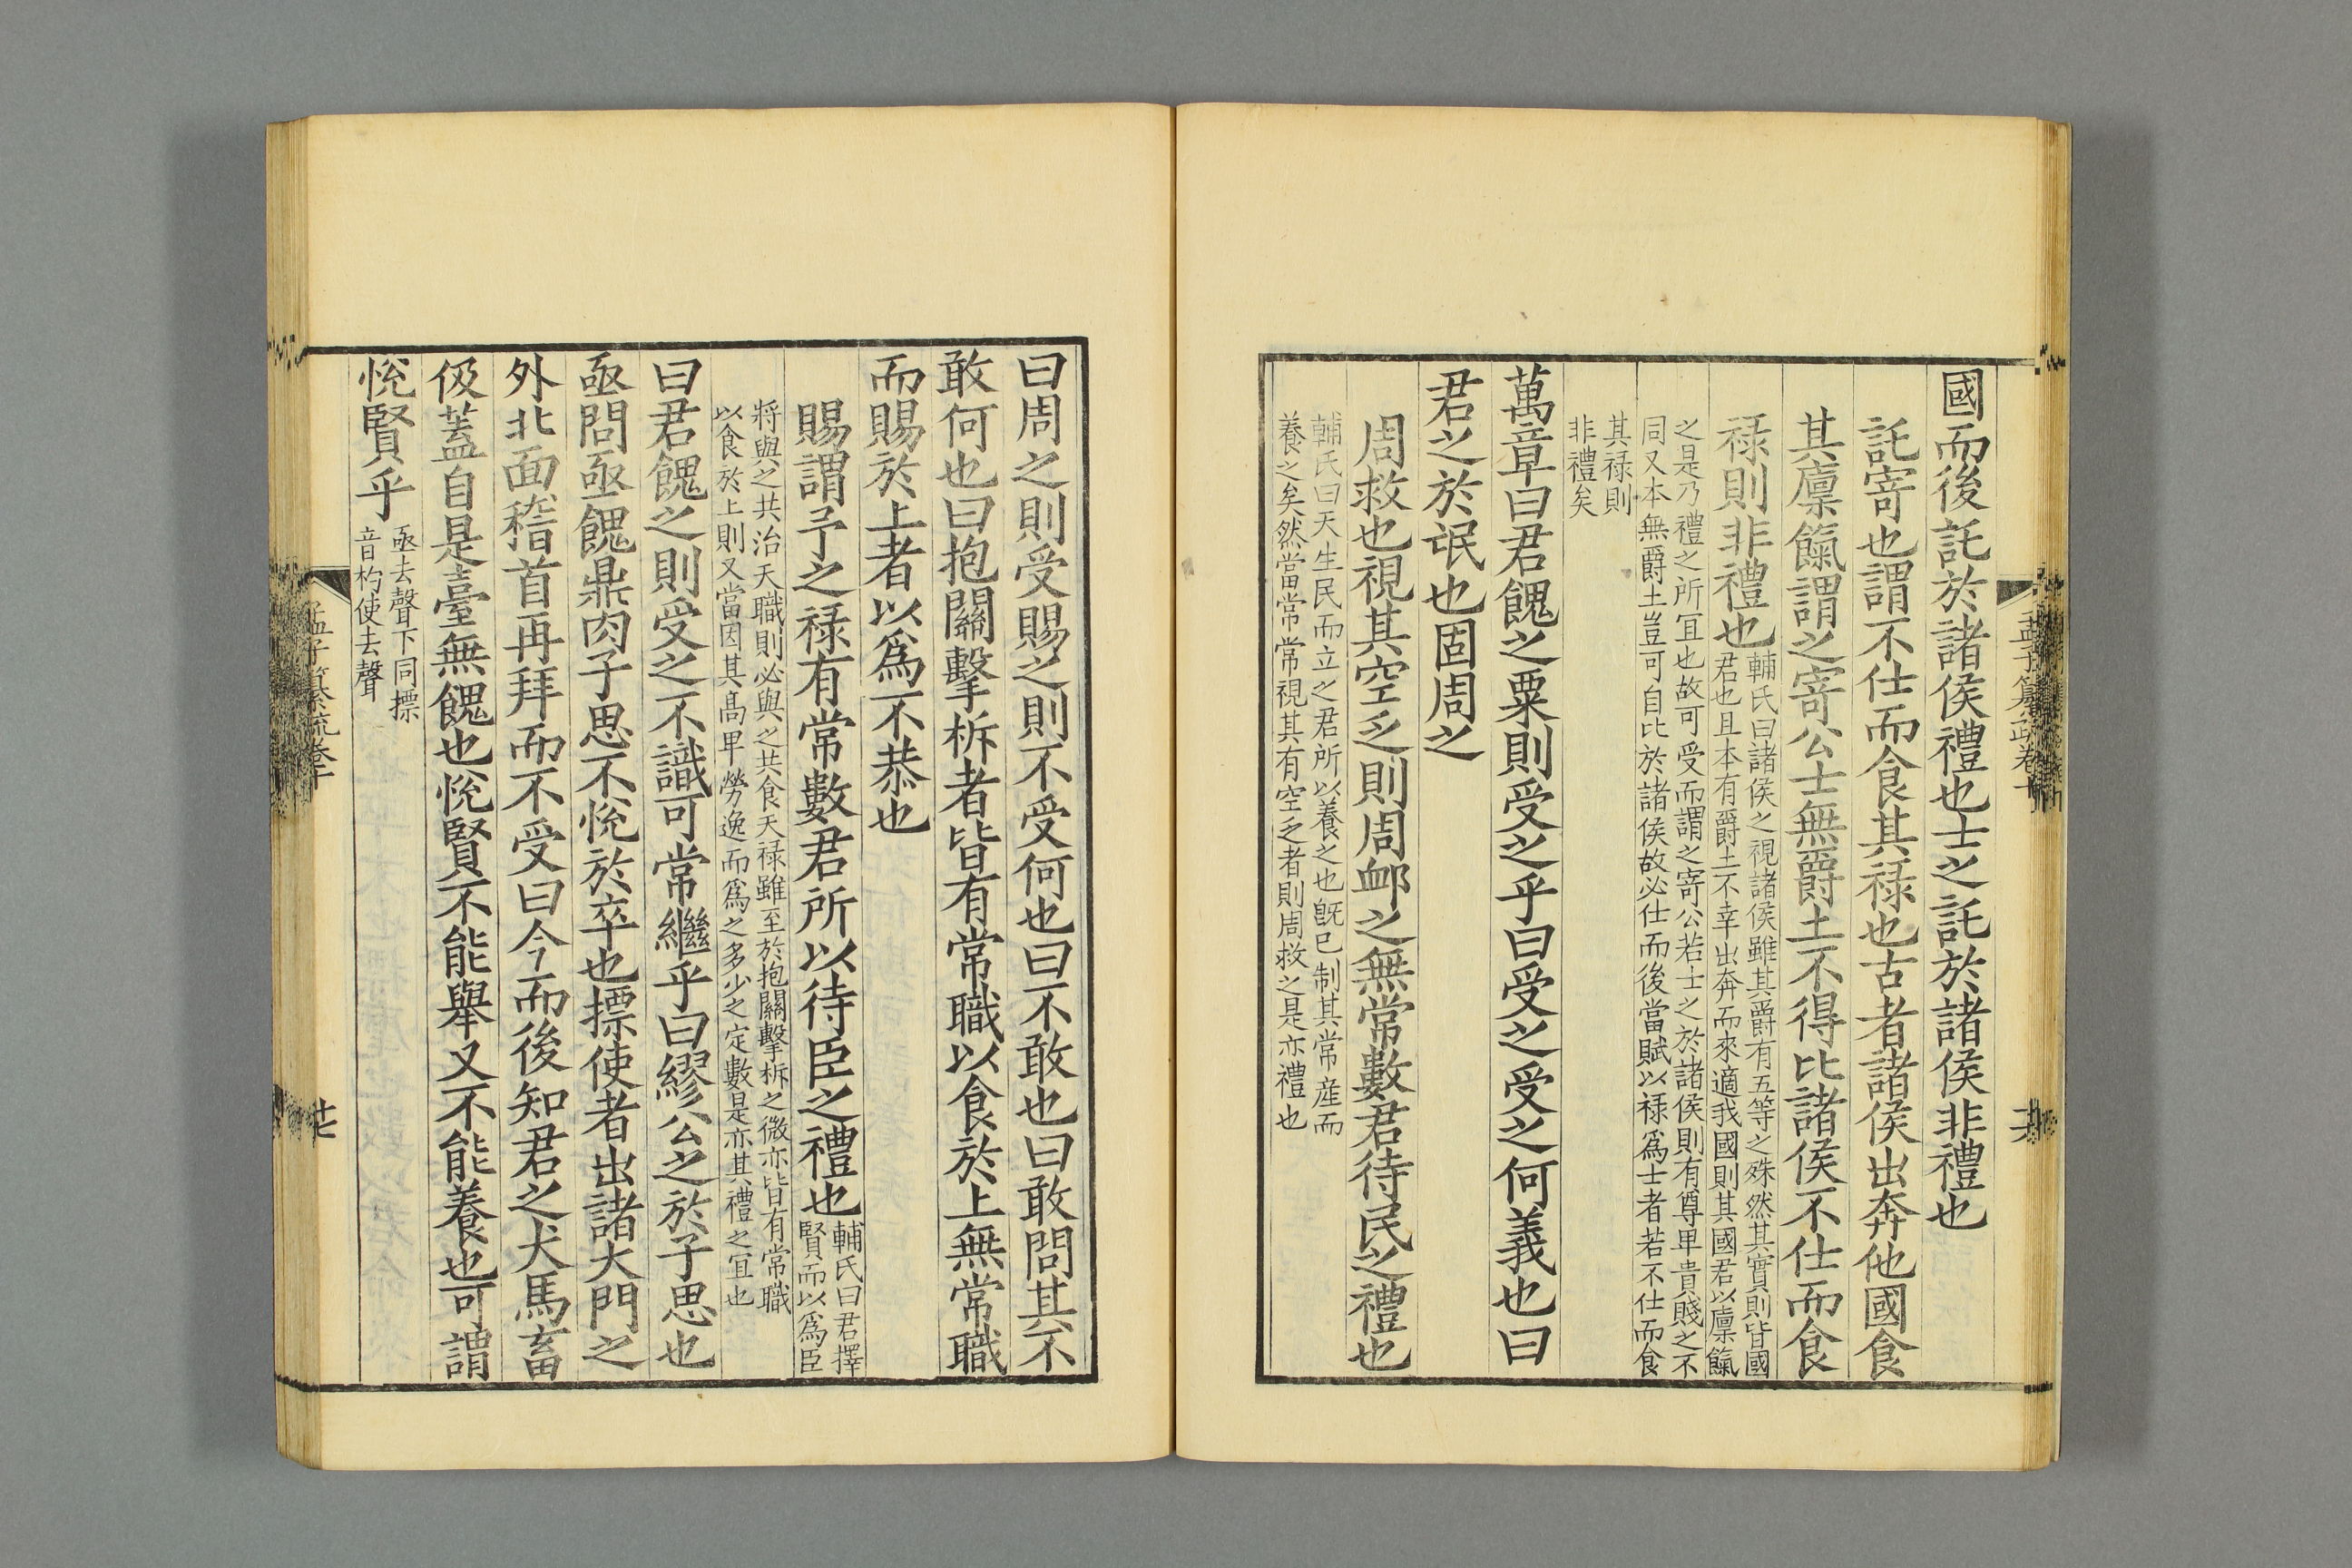 國而後託於諸侯禮也士之託於諸侯非禮也
託寄也謂不仕而食其禄也古者諸侯出奔他國食
其廪餼謂之寄公士無爵土不得比諸侯不仕而食
禄則非禮也
輔氏曰諸侯之視諸侯雖其爵有五等之殊然其實則皆國
君也且本有爵土不幸出奔而來適我國則其國君以廪餼
之是乃禮之所冝也故可受而謂之寄公若士之於諸侯則有尊卑貴賤之不
同又本無爵土豈可自比於諸侯故必仕而後當賦以禄爲士者若不仕而食
其禄則
非禮矣
萬章曰君餽之粟則受之乎曰受之受之何義也曰
君之於氓也固周之
周救也視其空乏則周卹之無常數君待民之禮也
輔氏曰天生民而立之君所以養之也旣已制其常産而
養之矣然當常常視其有空乏者則周救之是亦禮也
曰周之則受賜之則不受何也曰不敢也曰敢問其不
敢何也曰抱關擊柝者皆有常職以食於上無常職
而賜於上者以爲不恭也
賜謂予之禄有常數君所以待臣之禮也
輔氏曰君擇
賢而以爲臣
將與之共治天職則必與之共食天禄雖至於抱關擊柝之微亦皆有常職
以食於上則又當因其髙卑勞逸而爲之多少之定數是亦其禮之冝也
曰君餽之則受之不識可常繼乎曰繆公之於子思也
亟問亟餽鼎肉子思不恱於卒也摽使者出諸大門之
外北面稽首再拜而不受曰今而後知君之犬馬畜
伋蓋自是臺無餽也恱賢不能舉又不能養也可謂
恱賢乎
亟去聲下同摽
音杓使去聲
孟子纂疏卷十